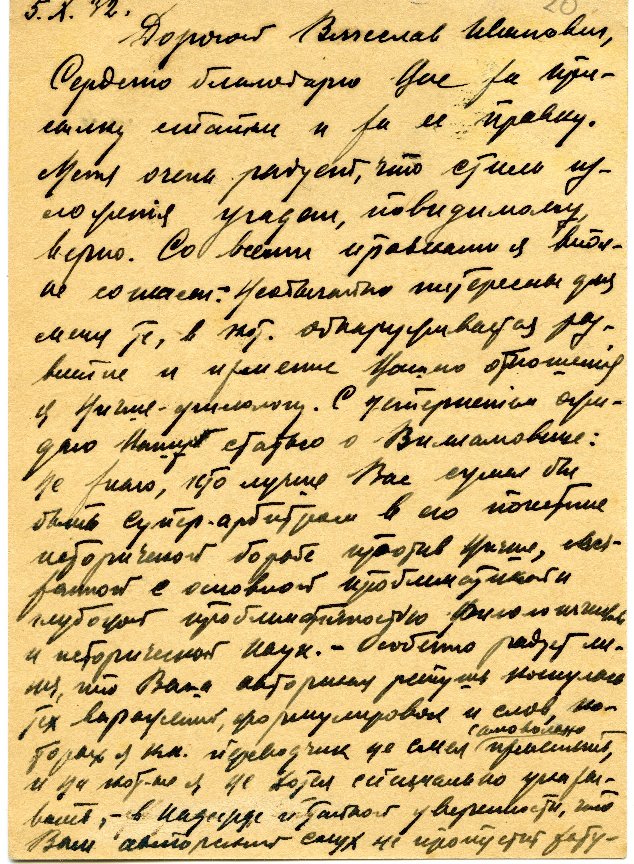 5.X.42. 20.
Дорогой Вячеслав Иванович,
Сердечно благодарю Вас за при-
сылку статьи и за ее правку.
Меня очень радует, что стиль из-
ложения угадан, повидимому,
верно. Со всеми правками я впол-
не согласен: Необычайно интересны для
меня те, в кот. обнаруживается раз-
витие и изменение Вашего отношения
к Ницше-филологу. С нетерпением ожи-
даю Вашу статью о Виламовице:
не знаю, кто лучше Вас сумел бы
быть супер-арбитром в его
исторической борьбе против Ницше, свя-
занной с основной проблематикой и
глубокой проблематичностью филологических
и исторических наук. – Особенно радует ме-
ня, что Ваша авторская ретушь коснулась
тех выражений, формулировок и слов, ко-
самовольно
торых я как переводчик не смел изменить,
и на кот-ые я не хотел специально указы-
вать, – в надежде и тайной уверенности, что
Ваш авторский слух не пропустит